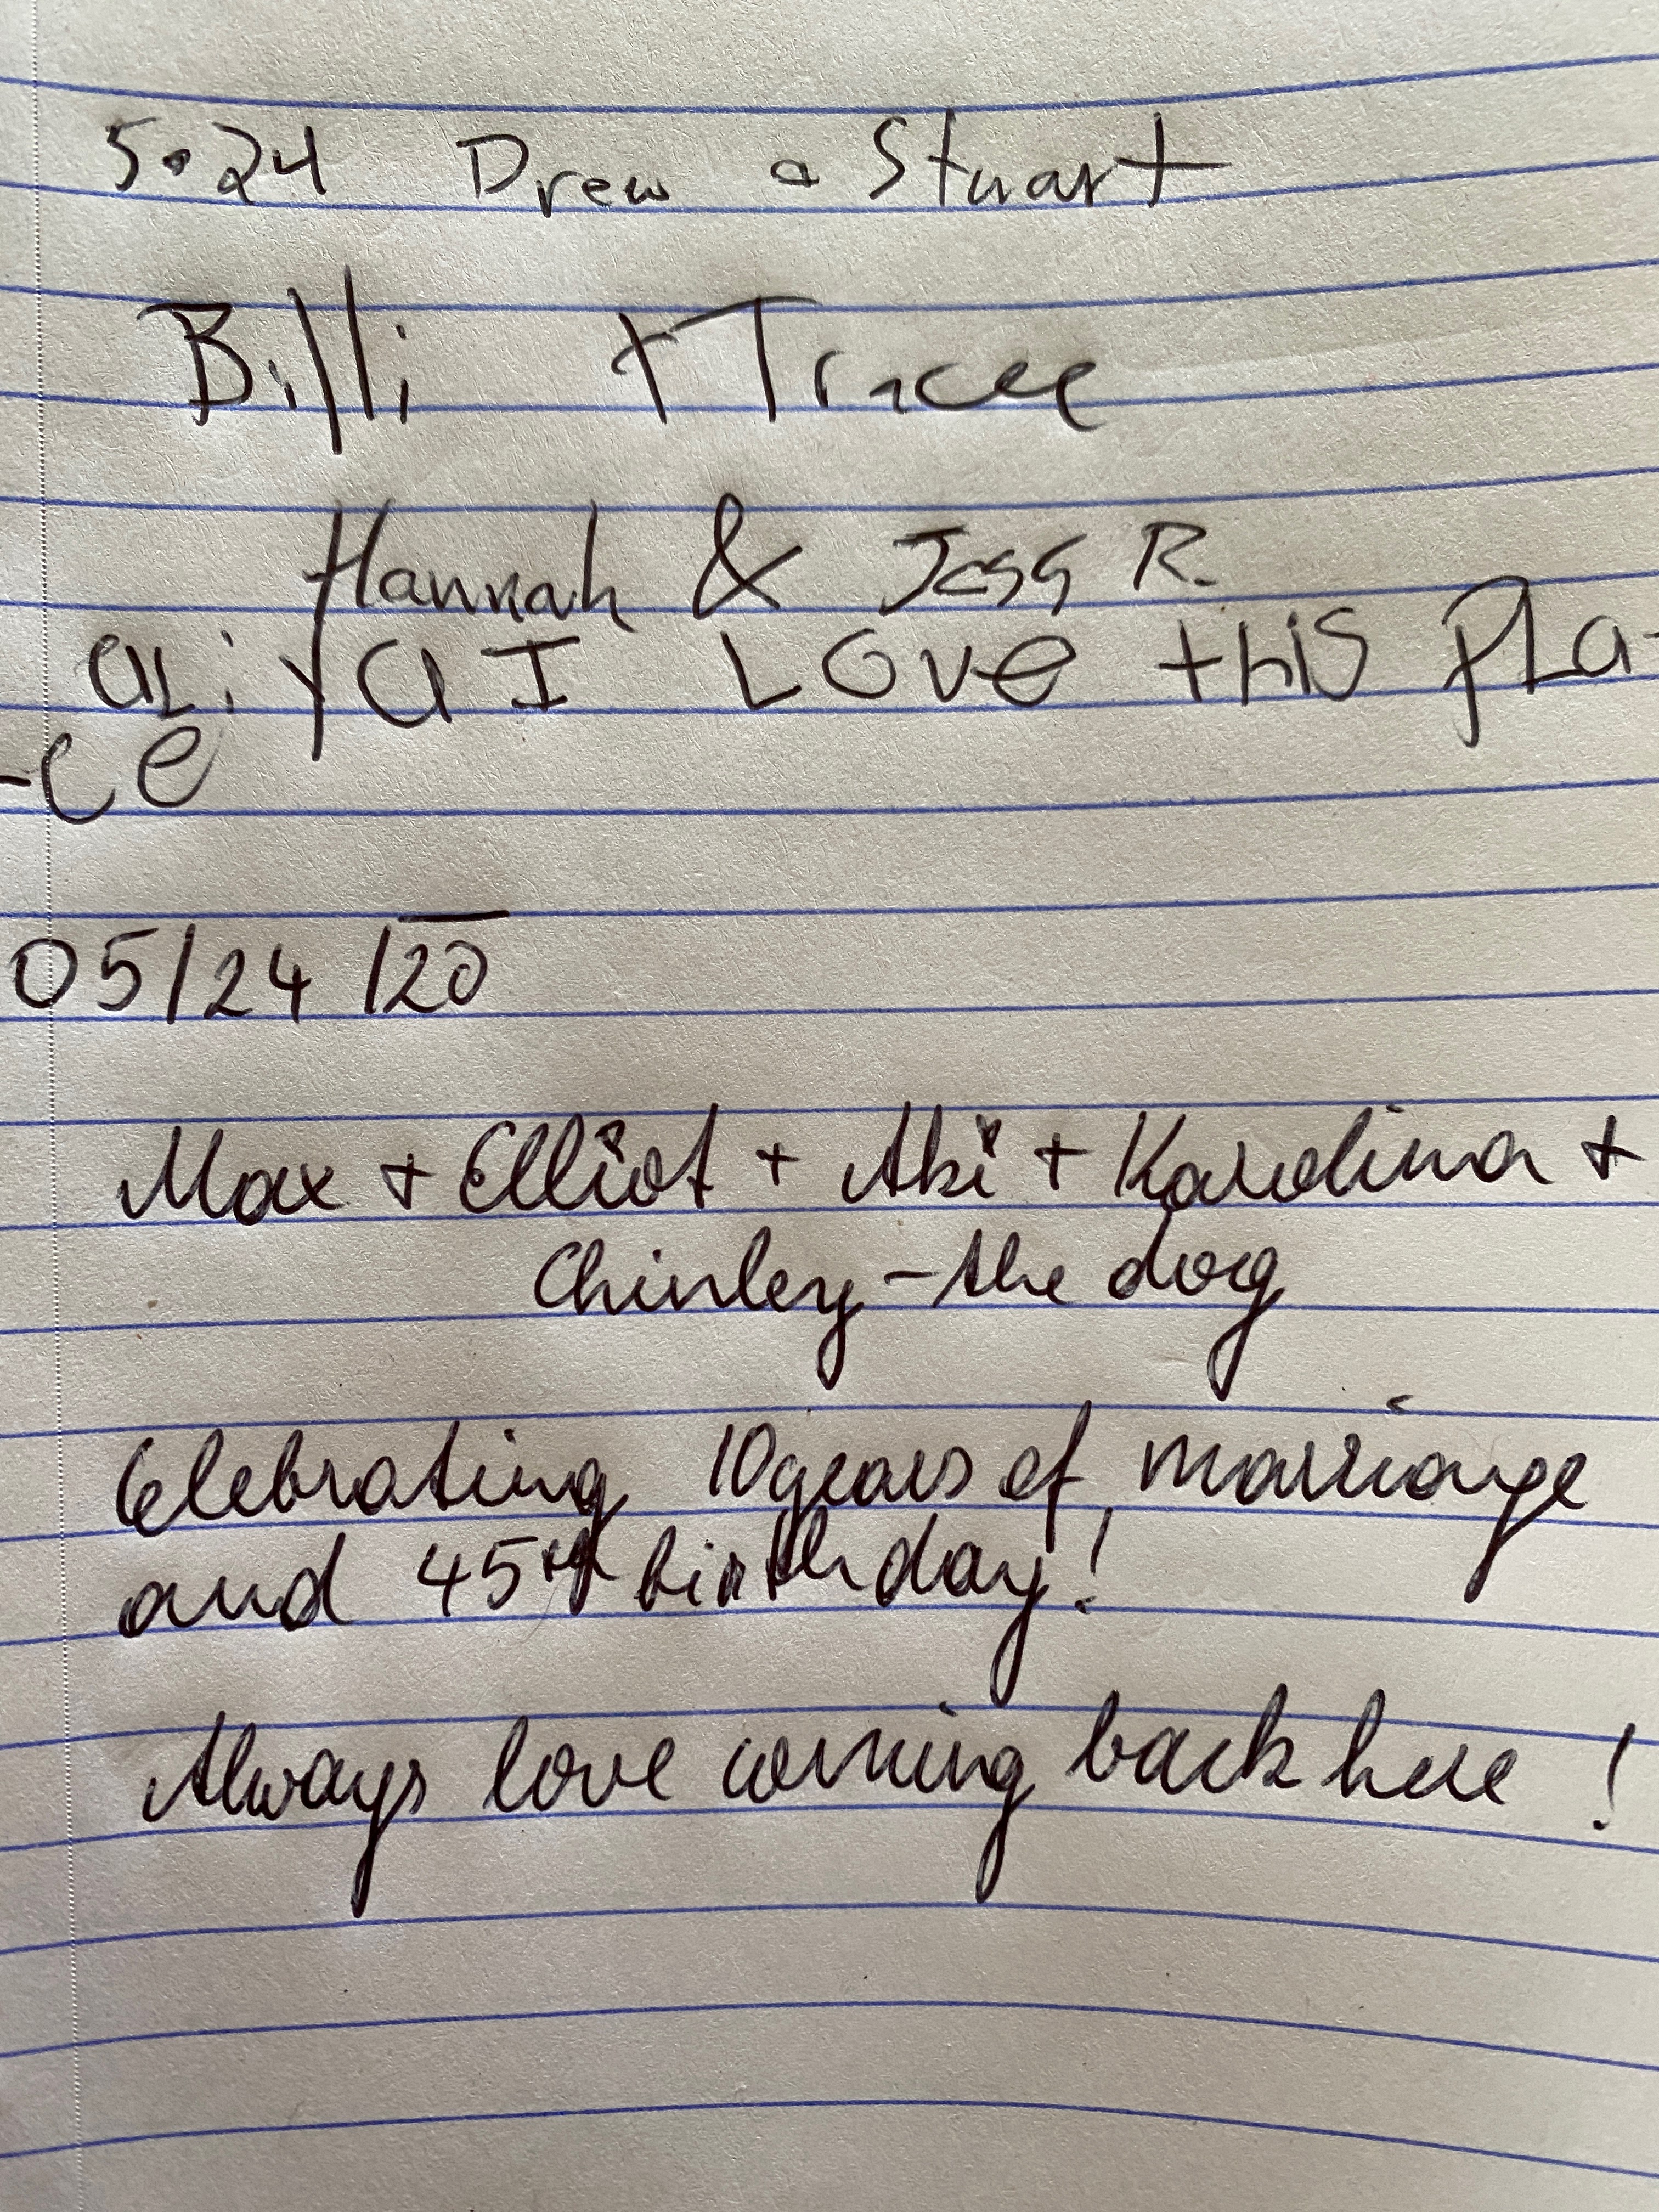 5•24 Drew • Stuart
Billi + Tracee
Hannah & Jess R.
aLiYa I LOVe this pLa-
-ce
05/24/20
Max + Elliot + Abi + Karolina +
Chinley - the dog
Celebrating 10 years of marriage
and 45th birthday!
Always love coming back here!